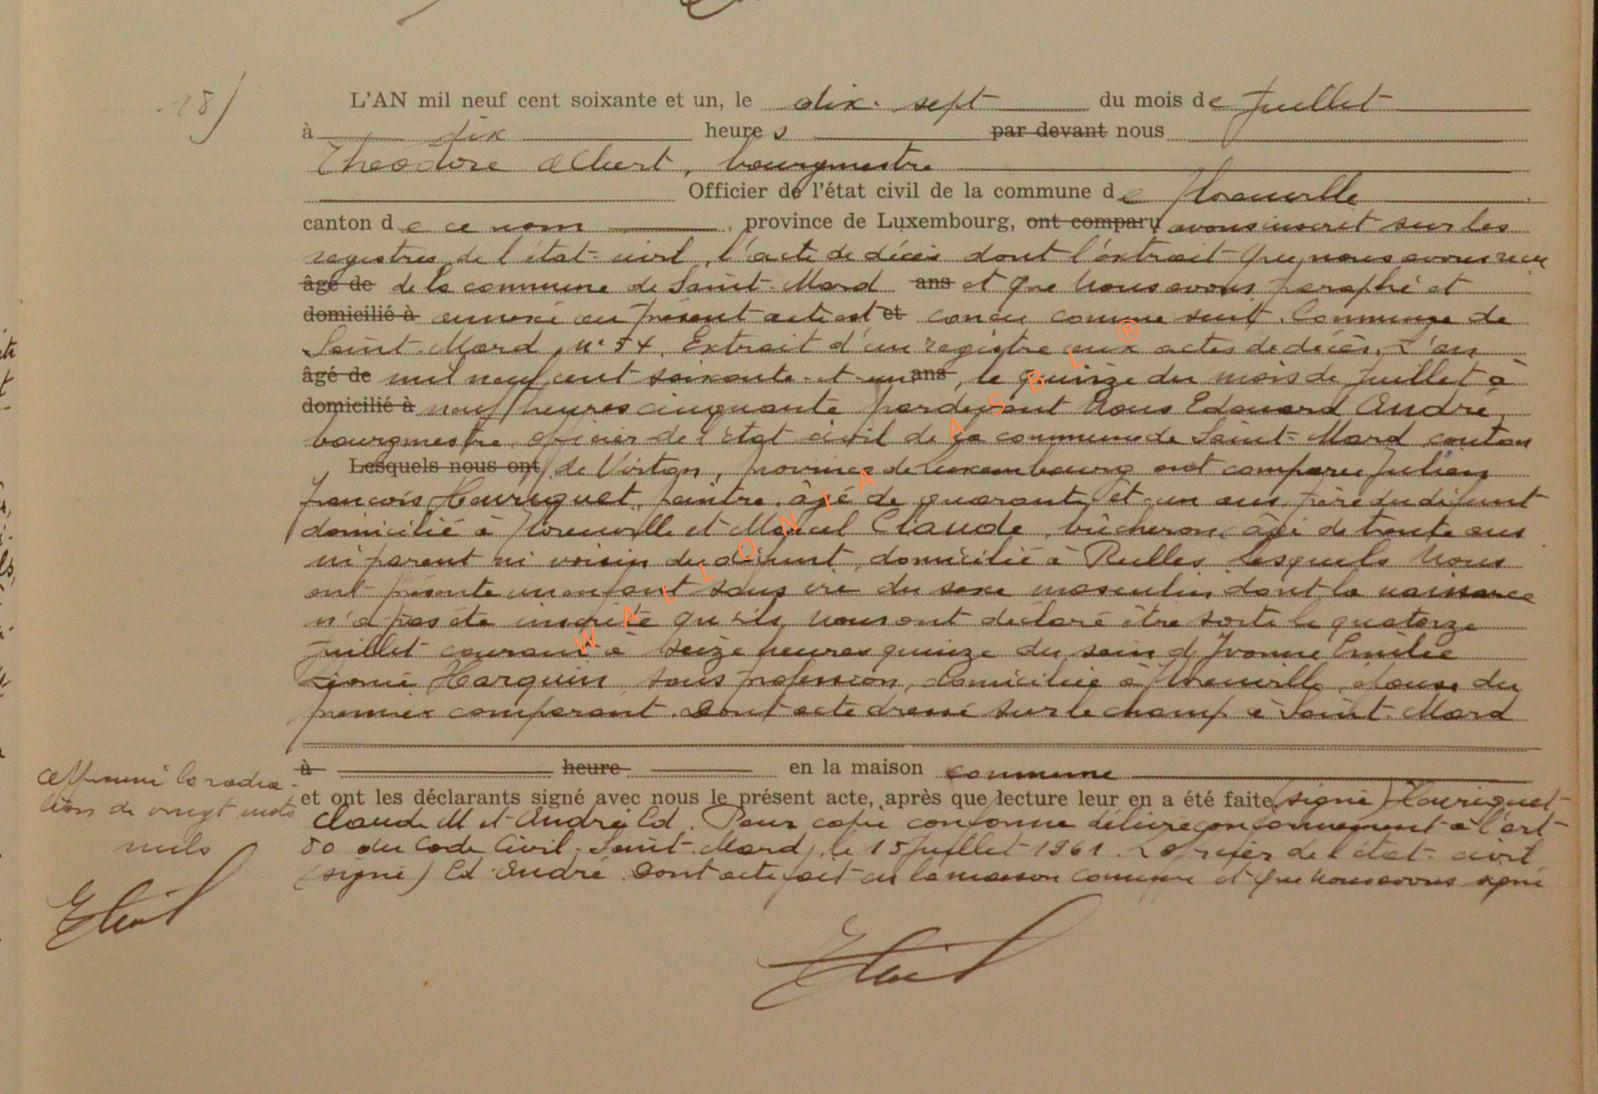 18)
L'AN mil neuf cent soixante et un, le dix-sept du mois de Juillet
à dix heures par devant nous
Théodore Albert, bourgmestre
Officier de l'état civil de la commune de Florenville
canton de ce nom, province de Luxembourg, ont comparu avons inscrit sur les
registres de l'état-civil, l'acte de décès dont l'extrait que nous avons reçu
âgé de de la commune de Saint-Mard ans et que nous avons paraphé et
domicilié à annexé au présent acte est et conçu comme suit. Commune de
Saint-Mard, N° 54, Extrait d'un registre aux actes de décès. L'an
âgé de mil neuf cent soixante-et-un ans, le quinze du mois de Juillet à
domicilié à neuf heures cinquante pardevant Nous Edouard André,
bourgmestre, officier de l'état civil de la commune de Saint-Mard canton
Lesquels nous ont de Virton, province de Luxembourg ont comparu Julien
François Hauriquet, peintre, âgé de quarante et un ans, père du défunt
domicilié à Florenville et Marcel Claude, bûcheron, âgé de trente ans
ni parent ni voisin du défunt, domicilié à Rulles lesquels Nous
ont présenté un enfant sans vie du sexe masculin dont la naissance
n'a pas été inscrite qu'ils nous ont déclaré être sorti le quatorze
Juillet courant à seize heures quinze du sein d'Ivonne Emilie
Harquin, sans profession, domiciliée à Florenville, épouse du
premier comparant. Dont acte dressé sur le champ à Saint-Mard
à heure en la maison commune
et ont les déclarants signé avec nous le présent acte, après que lecture leur en a été faite (signé) Hauriquet-
Claude M et André Ed. Pour copie conforme délivré conformément à l'art-
80 du Code Civil. Saint-Mard, le 15 Juillet-1961. L'officier de l'état-civil
(signé) Ed. André. Dont acte fait en la maison commune et que nous avons signé
Approuvé la radia-
tion de vingt mots
nuls
WALLONIA ASBL ®